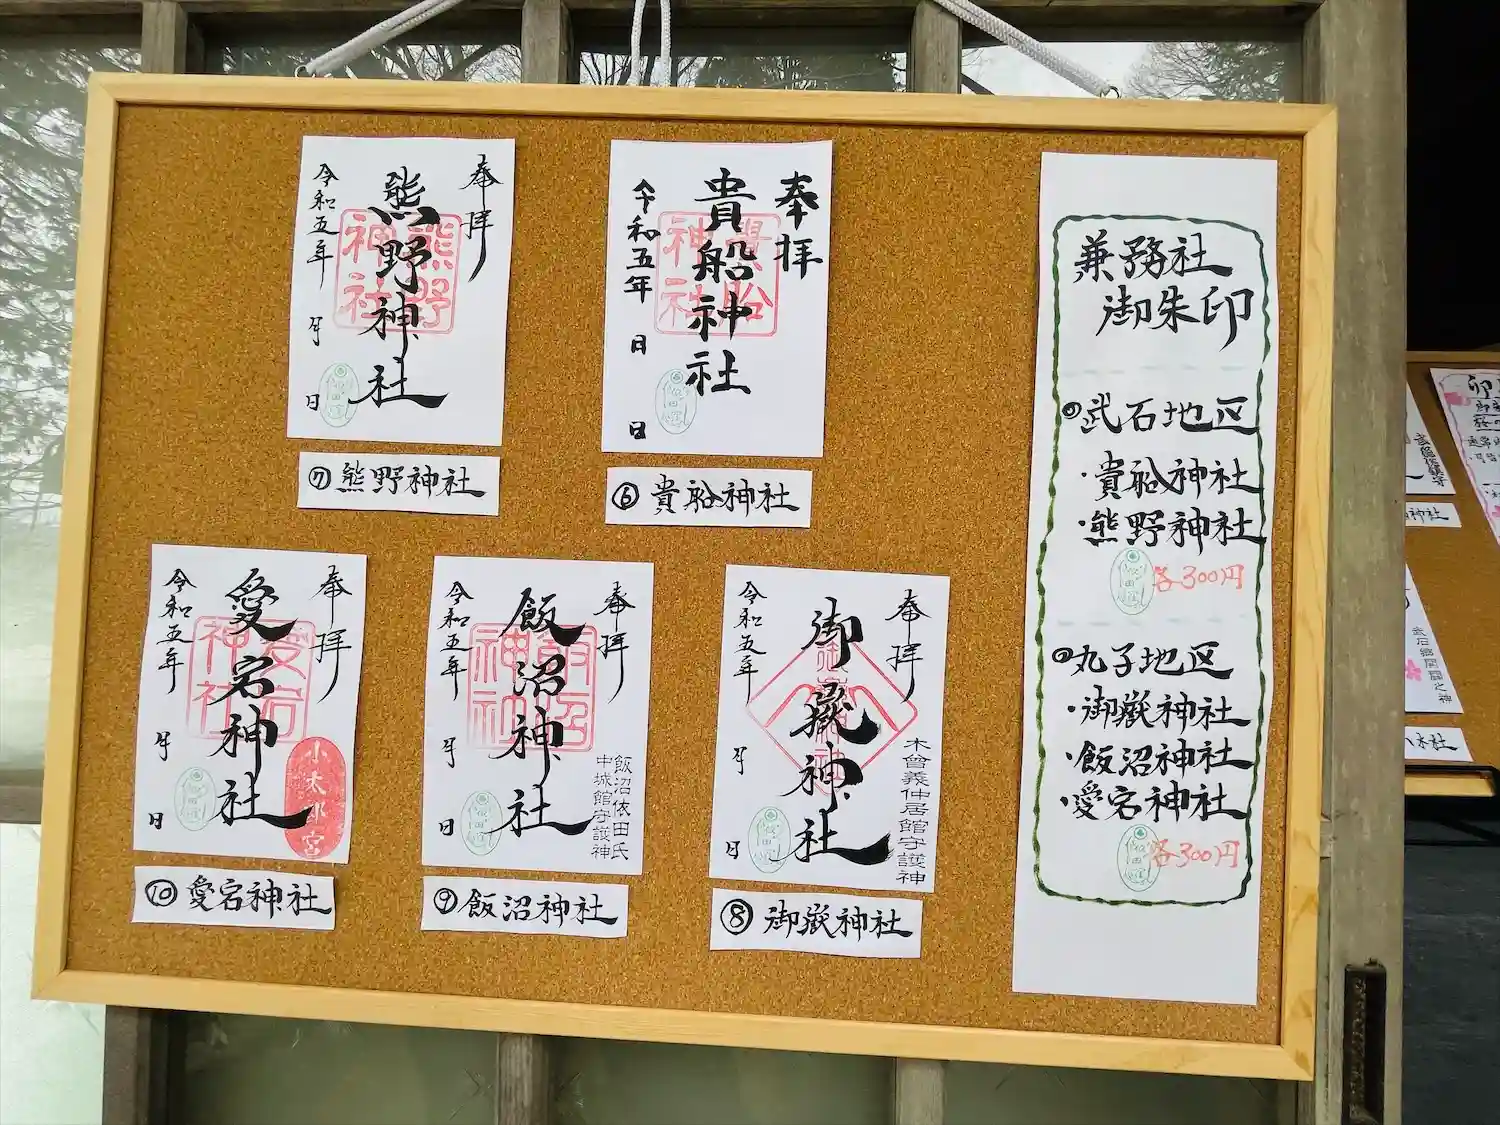 兼務社
御朱印
武石地区
・貴船神社
・熊野神社
各300円
丸子地区
・御嶽神社
・飯沼神社
・愛宕神社
各300円
奉拝
貴船神社
貴船神社
令和五年 月 日
⑥ 貴船神社
奉拝
熊野神社
熊野神社
令和五年 月 日
⑦ 熊野神社
奉拝
御嶽神社
木曾義仲居館守護神
令和五年 月 日
⑧ 御嶽神社
奉拝
飯沼神社
飯沼神社
飯沼依田氏
中城館守護神
令和五年 月 日
⑨ 飯沼神社
奉拝
愛宕神社
愛宕神社
小太郎宮
令和五年 月 日
⑩ 愛宕神社